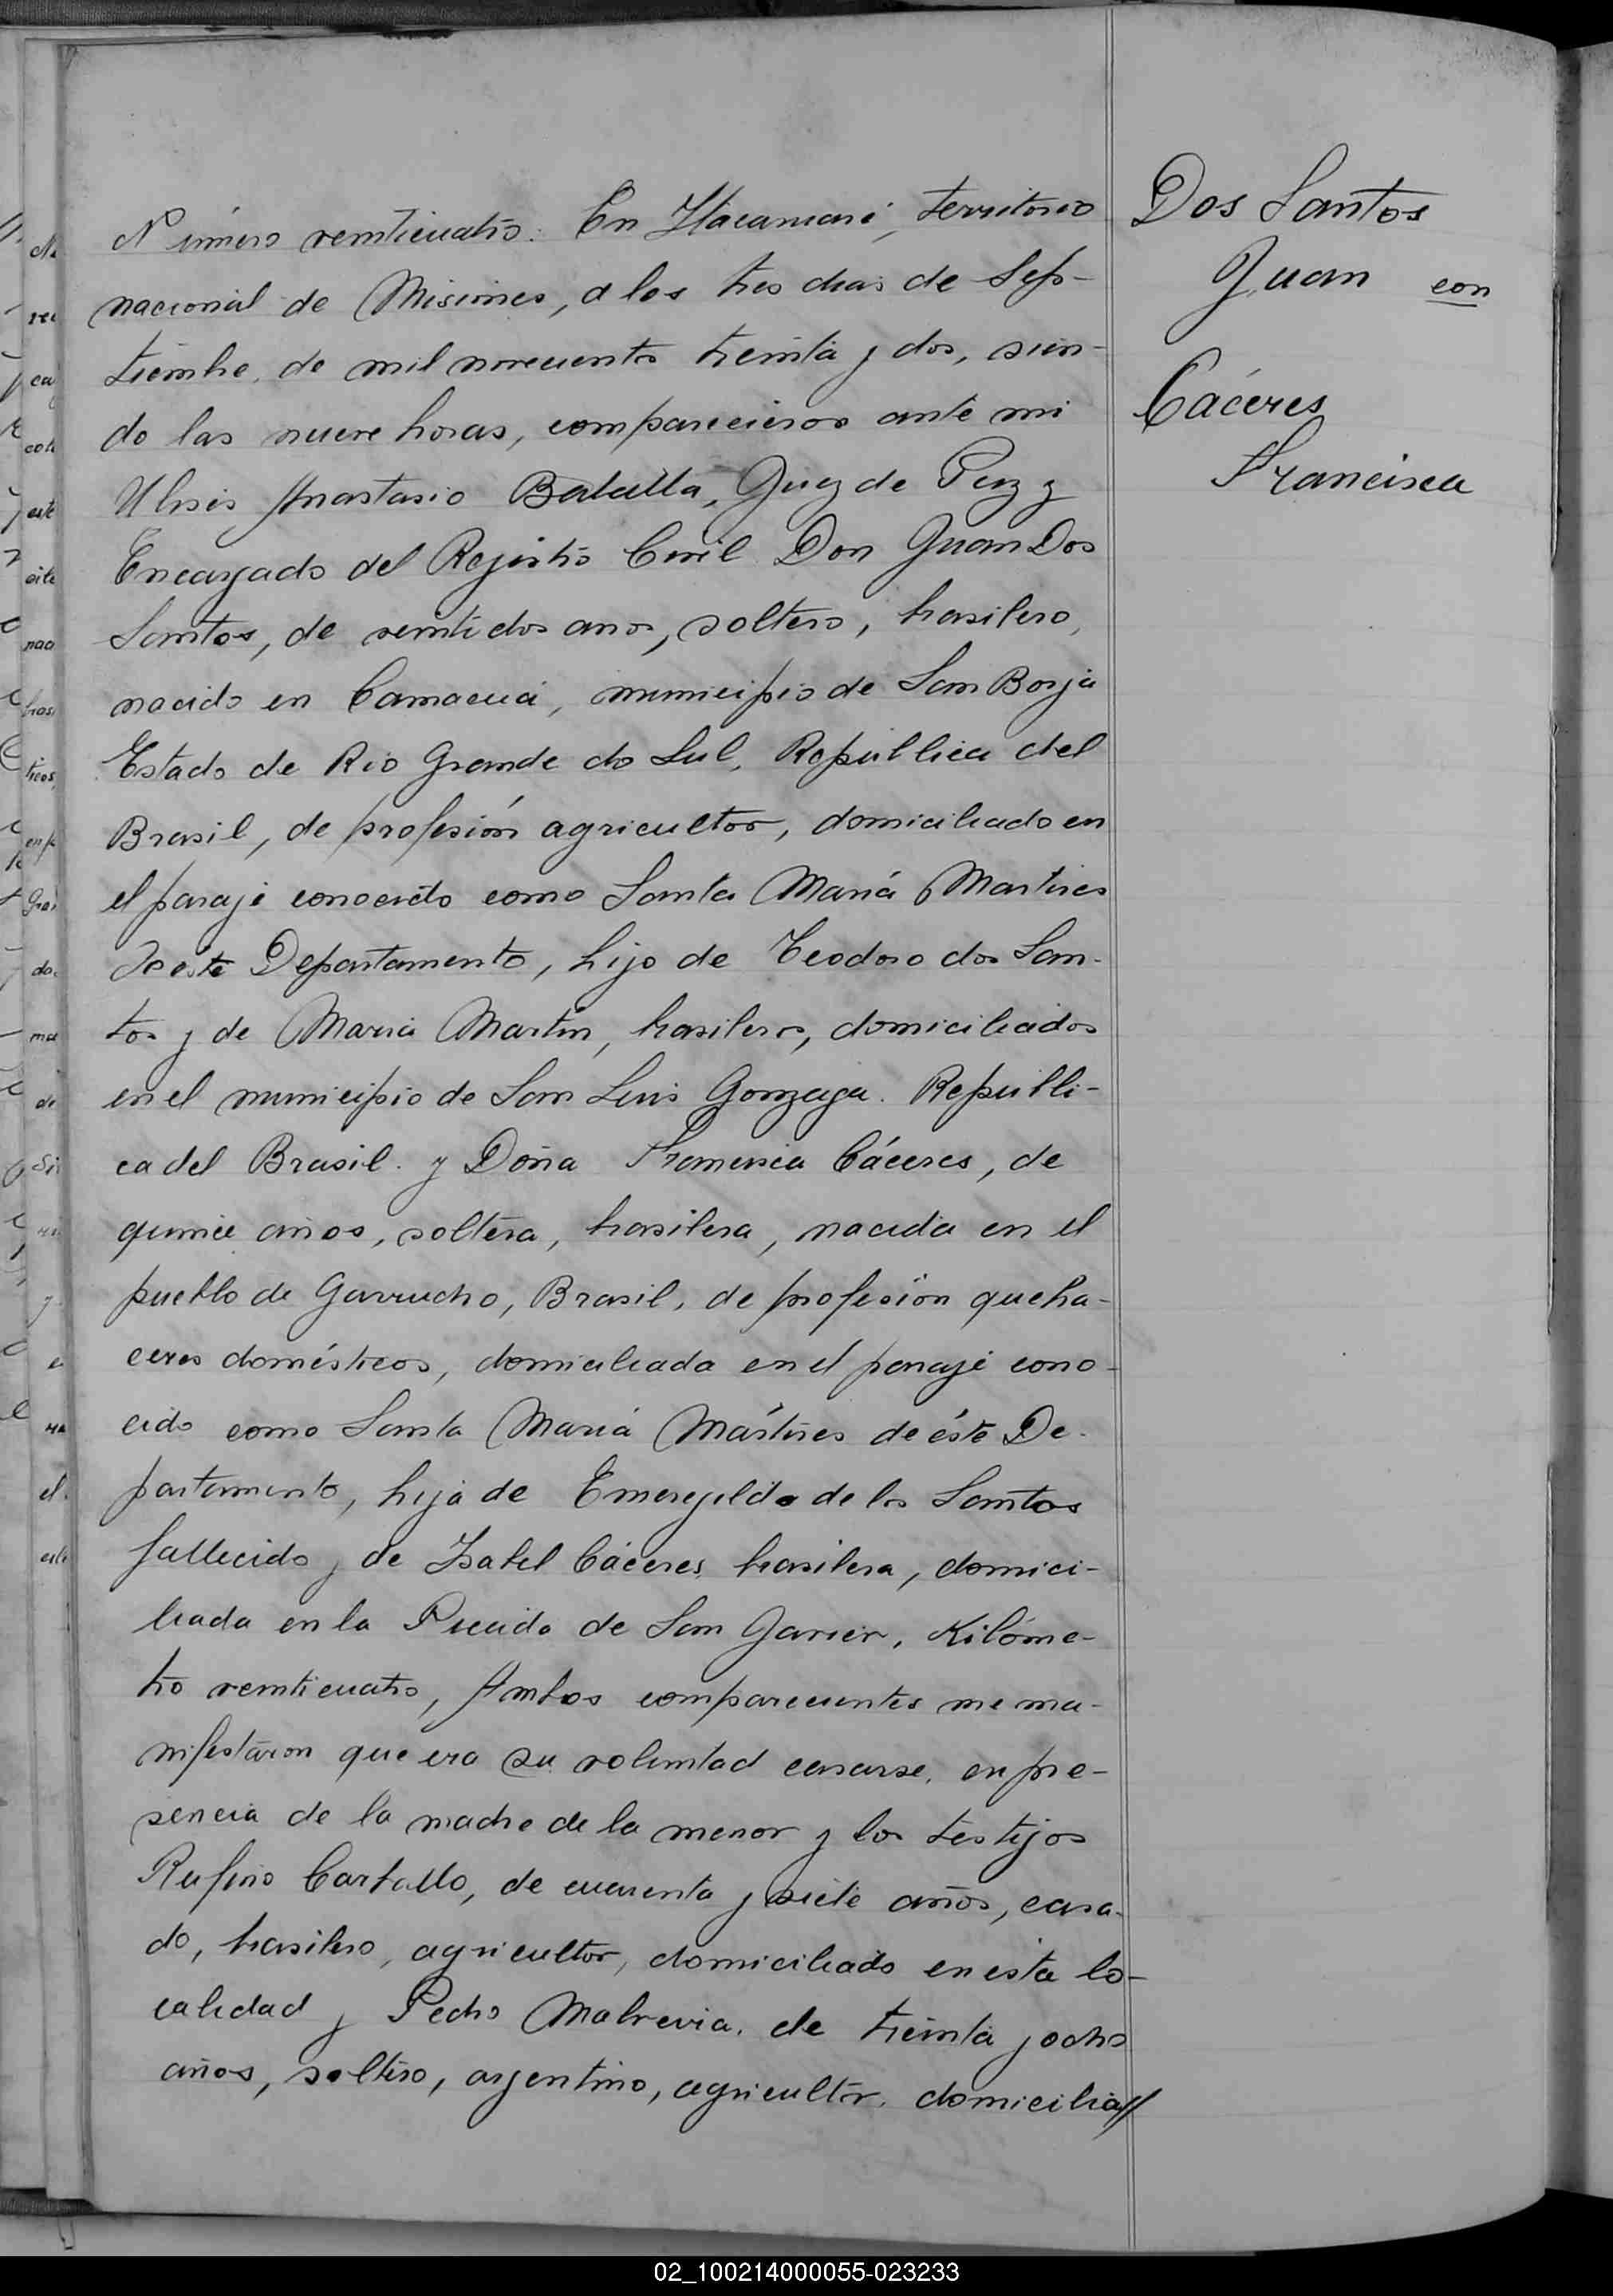 Dos Santos
Juan con
Cáceres
Francisca
Número veinticuatro. En Itacaruaré, territorio
nacional de Misiones, a los tres dias de Sep-
tiembre, de mil novecientos treinta y dos, sien-
do las nueve horas, comparecieron ante mi
Ulises Anastasio Batalla, Juez de Paz y
Encargado del Registro Civil Don Juan Dos
Santos, de veintidos años, soltero, brasilero,
nacido en Camacuá, municipio de San Borja
Estado de Rio Grande do Sul, República del
Brasil, de profesión agricultor, domiciliado en
el paraje conocido como Santa María Martires
de éste Departamento, hijo de Teodoro dos San-
tos y de Maria Martin, brasileros, domiciliados
en el municipio de San Luis Gonzaga. Repúbli-
ca del Brasil. y Doña Francisca Cáceres, de
quince años, soltera, brasilera, nacida en el
pueblo de Garrucho, Brasil, de profesión queha-
ceres domésticos, domiciliada en el paraje cono-
cido como Santa María Mártires de éste De-
partamento, hija de Emeregildo de los Santos
fallecido y de Isabel Cáceres, brasilera, domici-
liada en la Picada de San Javier, Kilóme-
tro veinticuatro, Ambos comparecientes me ma-
nifestaron que era su voluntad casarse, en pre-
sencia de la madre de la menor y los testigos
Rufino Carballo, de cuarenta y siete años, casa-
do, brasilero, agricultor, domiciliado en ésta lo-
calidad y Pedro de treinta y ocho
años, soltero, argentino, agricultor, domicilia//
02_100214000055-023233